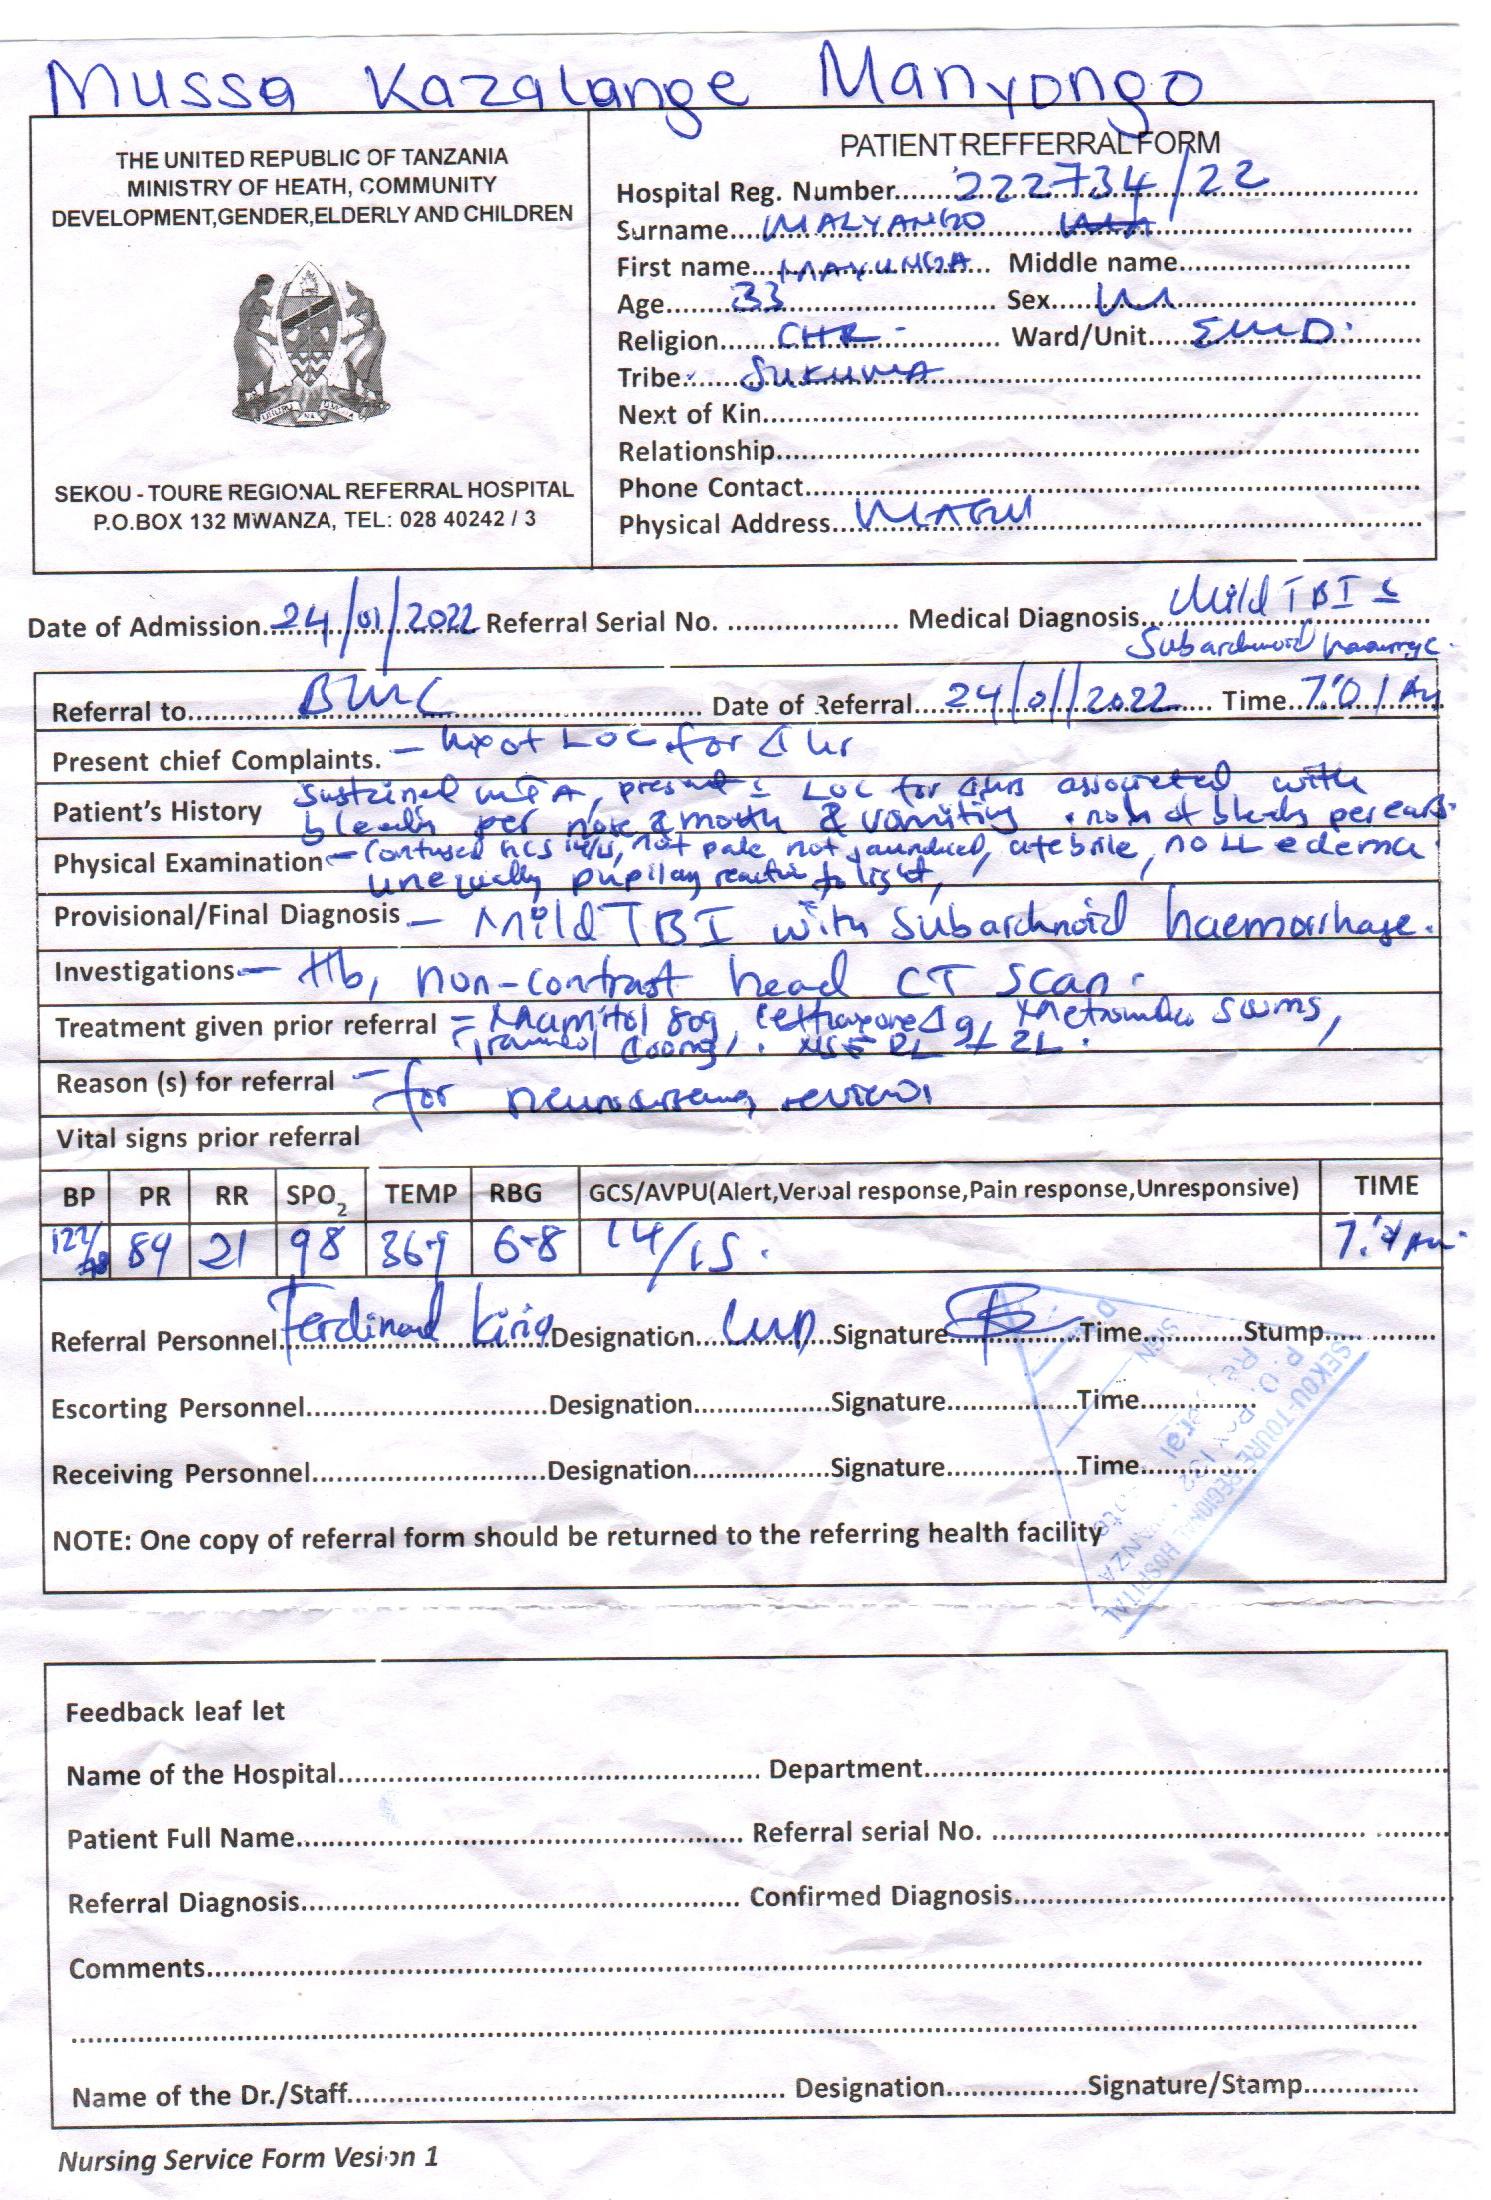 Mussa Kazalange Manyongo
THE UNITED REPUBLIC OF TANZANIA
MINISTRY OF HEATH, COMMUNITY
DEVELOPMENT,GENDER,ELDERLY AND CHILDREN
SEKOU - TOURE REGIONAL REFERRAL HOSPITAL
P.O.BOX 132 MWANZA, TEL: 028 40242 / 3
PATIENT REFFERRAL FORM
Hospital Reg. Number 222734/22
Surname MALYANGO
First name MAYUNGA Middle name
Age 33 Sex M
Religion CHR Ward/Unit EMD
Tribe SUKUMA
Next of Kin
Relationship
Phone Contact
Physical Address MAGU
Date of Admission 24/01/2022 Referral Serial No. Medical Diagnosis Mild TBI c
Subarchnoid
Referral to BMC Date of Referral 24/01/2022 Time 7:01 AM
Present chief Complaints. - hx of LOC for 1 hr
Patient's History Sustained MTA, present c LOC for associated with
bleeding per nose & mouth & vomiting . no hx of bleeding per ears.
Physical Examination - Confused GCS 14/15, not pale not jaundiced, afebrile, no LL edema.
unequally pupilary reactive to light,
Provisional/Final Diagnosis - Mild TBI with Subarchnoid haemorrhage.
Investigations - Hb, non-contrast head CT scan.
Treatment given prior referral = Mannitol 80g, 1g,
100mg,
Reason (s) for referral - for neurosurgery review
Vital signs prior referral
BP PR RR SPO2 TEMP RBG GCS/AVPU(Alert,Verbal response,Pain response,Unresponsive) TIME
122/ 89 21 98 36.9 6.8 14/15.
Referral Personnel Ferdinand Designation Signature Time Stump
Escorting Personnel Designation Signature Time
Receiving Personnel Designation Signature Time
NOTE: One copy of referral form should be returned to the referring health facility
SEKOU-TOURE REGIONAL HOSPITAL
P.O. Box 132
SIGN
Feedback leaf let
Name of the Hospital Department
Patient Full Name Referral serial No.
Referral Diagnosis Confirmed Diagnosis
Comments
Name of the Dr./Staff Designation Signature/Stamp
Nursing Service Form Vesion 1